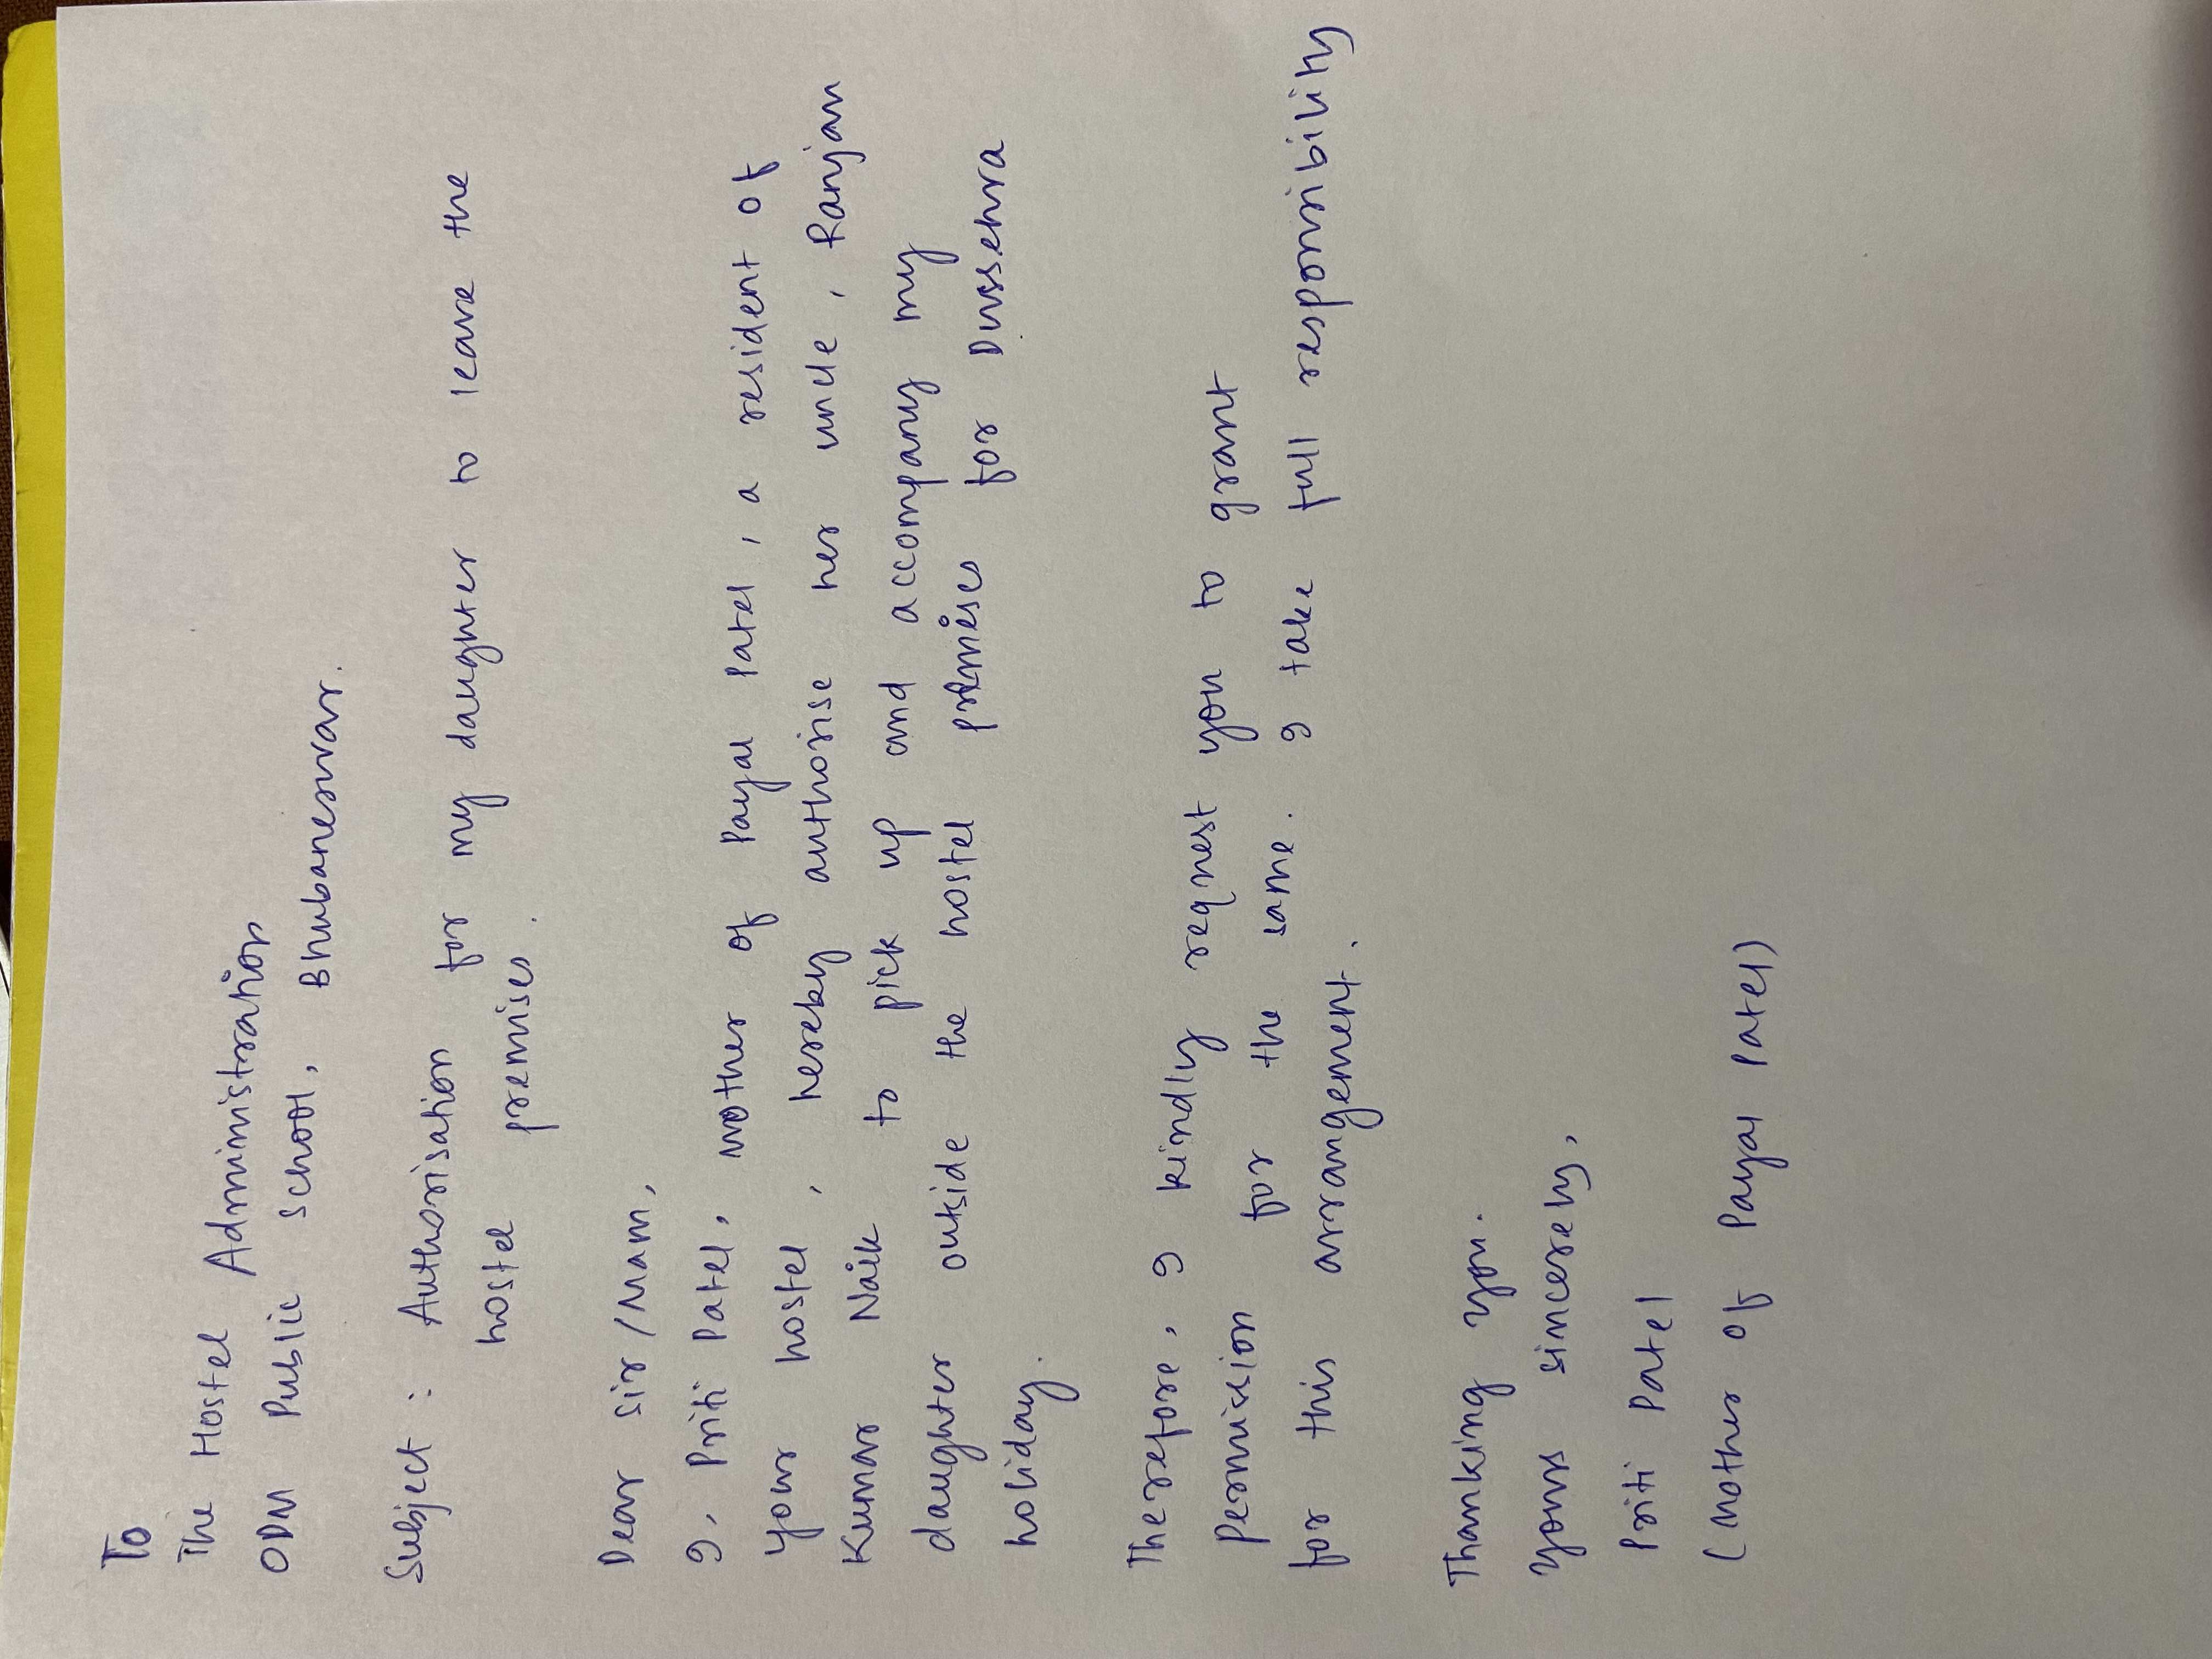 To
The Hostel Administration
ODM Public School, Bhubaneswar.
Subject : Authorisation for my daughter to leave the
hostel premises.
Dear Sir/Mam,
I, Priti Patel, mother of Payal Patel, a resident of
your hostel, hereby authorise her uncle, Ranjan
Kumar Naik to pick up and accompany my
daughter outside the hostel premises for Dussehra
holiday.
Therefore, I kindly request you to grant
permission for the same. I take full responsibility
for this arrangement.
Thanking you.
Yours sincerely,
Priti Patel
(Mother of Payal Patel)